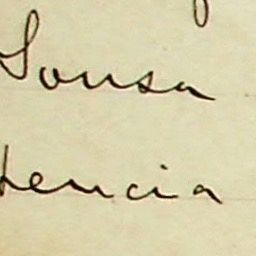 Sousa
tencia